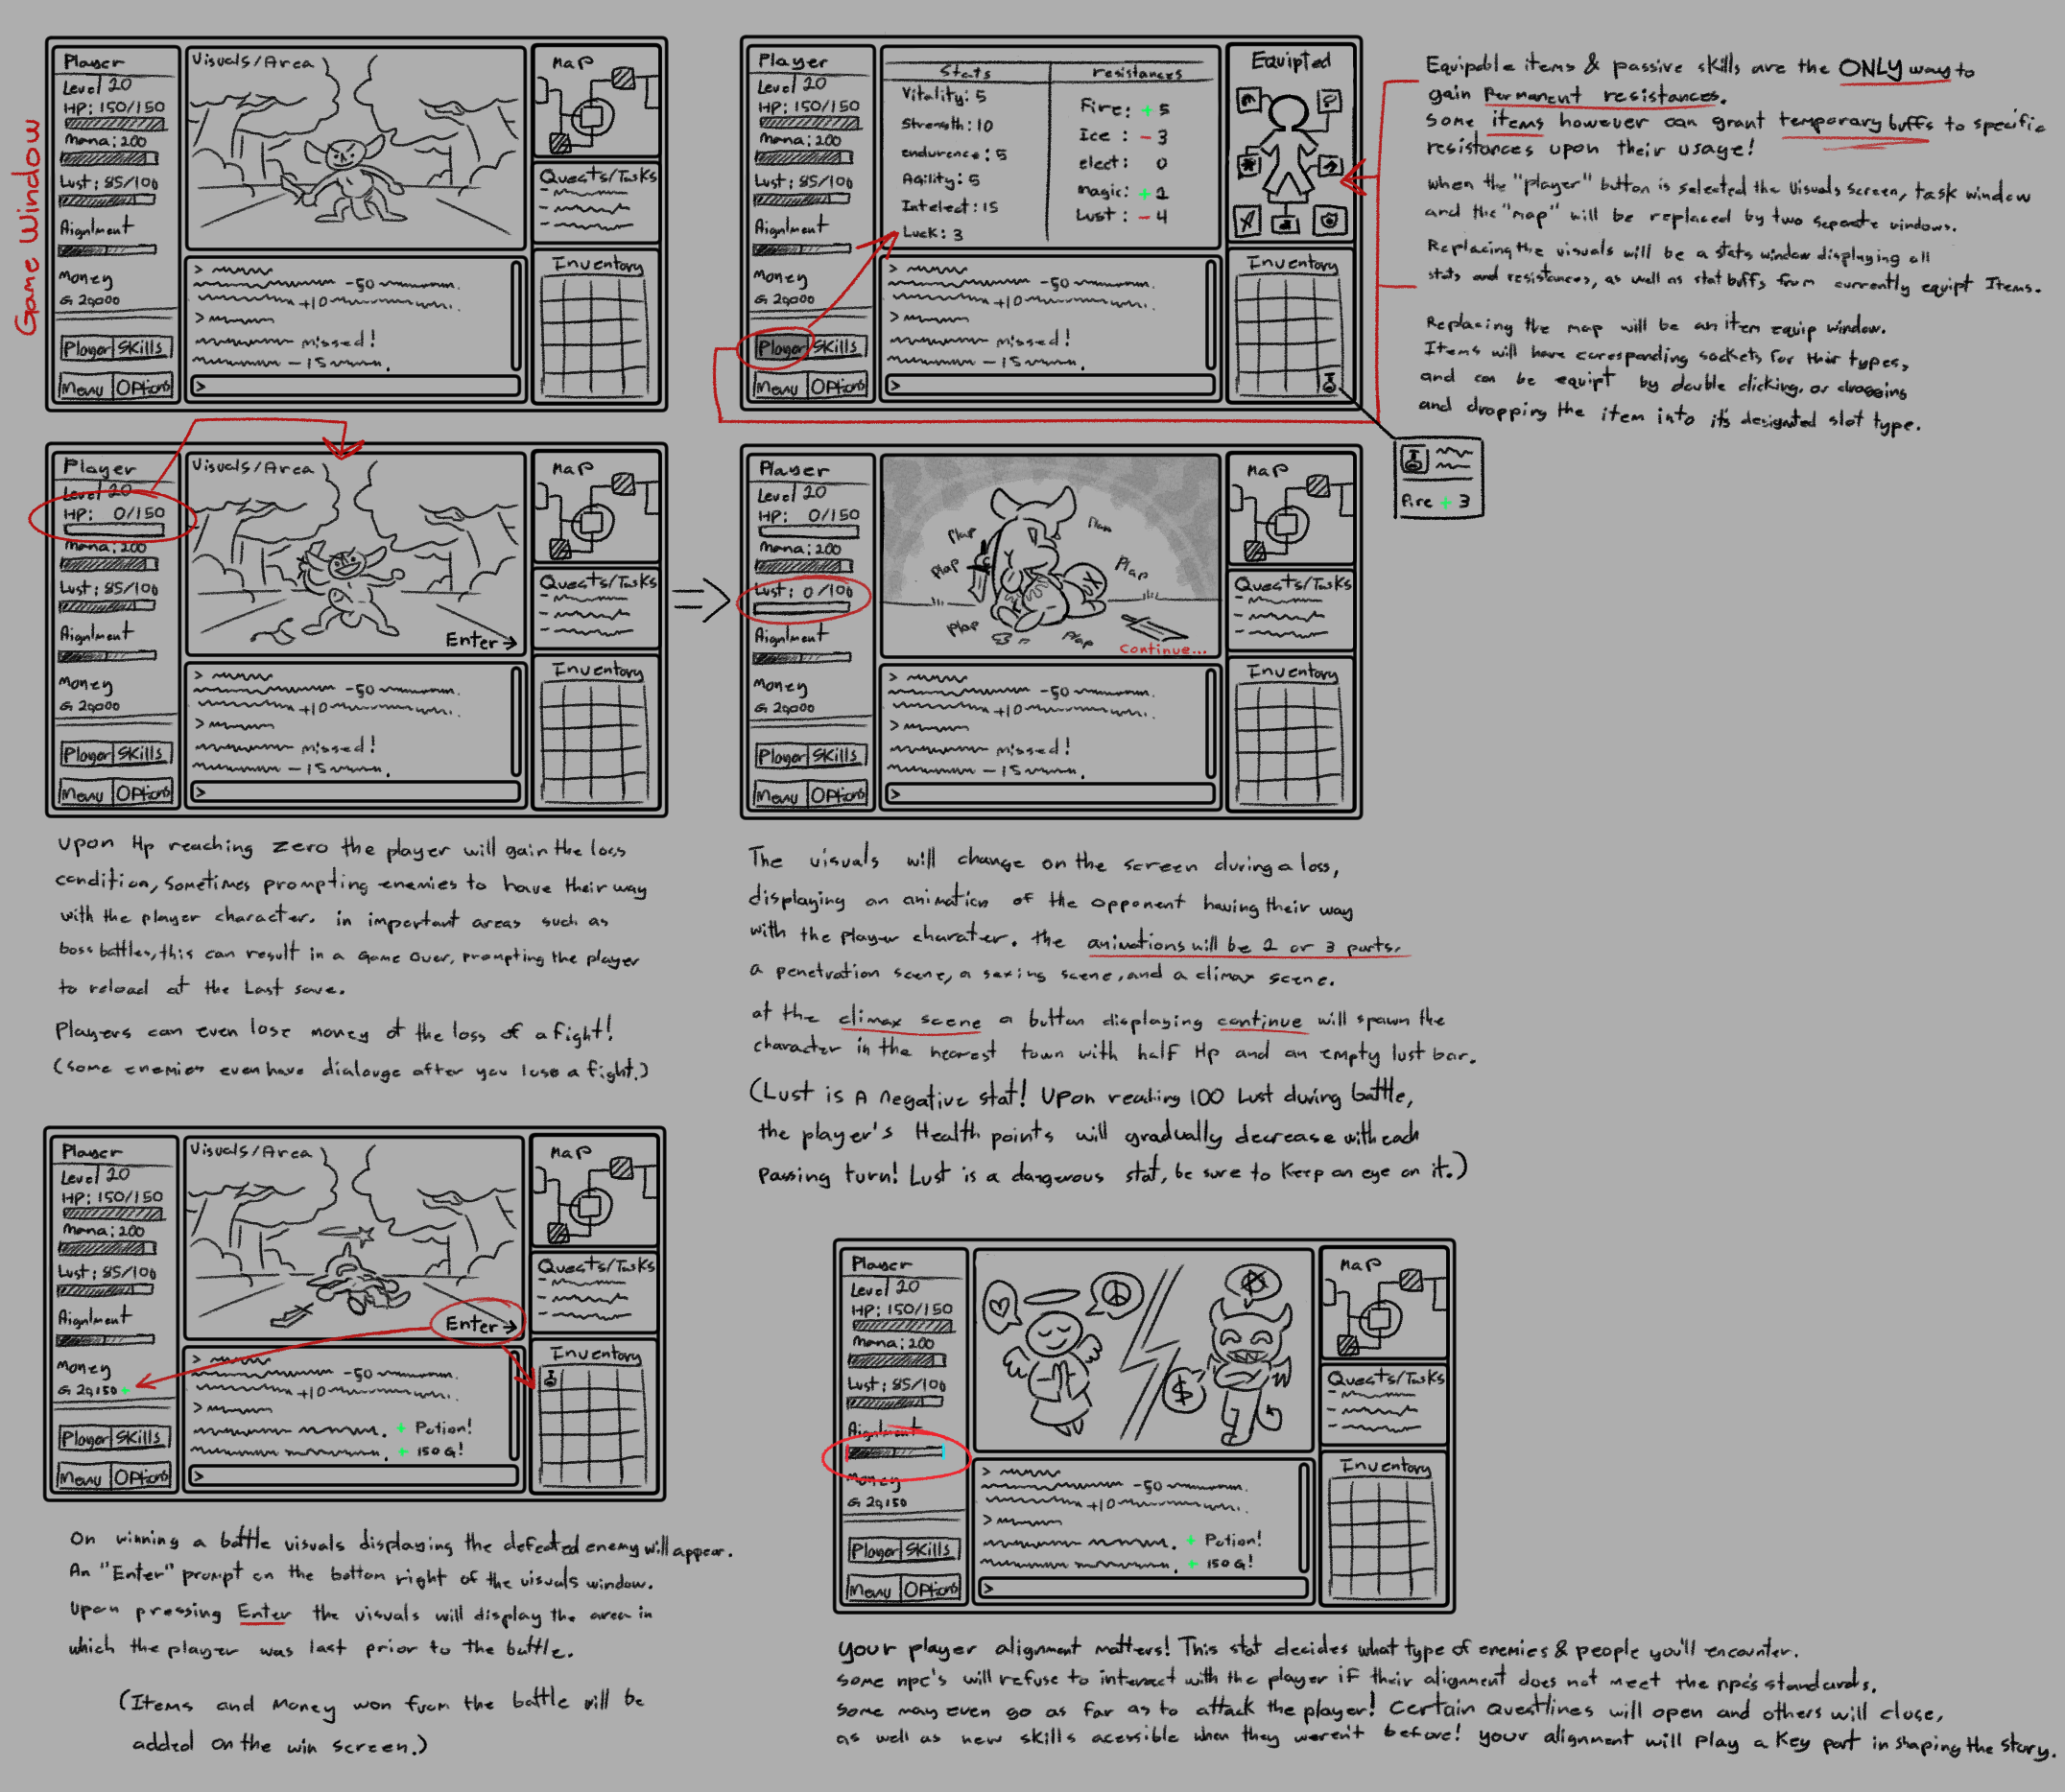 Game Window
Player
Level 20
HP: 150/150
Mana: 200
Lust: 85/100
Aignlment
Money
G 20,000
Player
Skills
Menu
Options
Visuals/Area
>
-50
+10
>
missed!
-15
>
Map
Quests/Tasks
Inventory
Player
Level 20
HP: 150/150
Mana: 200
Lust: 85/100
Aignlment
Money
G 20,000
Player
Skills
Menu
Options
Stats
Vitality: 5
Strength: 10
endurence: 5
Agility: 5
Intelect: 15
Luck: 3
resistances
Fire: + 5
Ice : - 3
elect: 0
magic: + 1
Lust : - 4
>
-50
+10
>
missed!
-15
>
Equipted
Inventory
Fire + 3
Equipable items & passive skills are the ONLY way to
gain permanent resistances.
some items however can grant temporary buffs to specific
resistances upon their usage!
when the "player" button is selected the visuals screen, task window
and the "map" will be replaced by two seperate windows.
Replacing the visuals will be a stats window displaying all
stats and resistances, as well as stat buffs from currently equipt Items.
Replacing the map will be an item equip window.
Items will have coresponding sockets for their types,
and can be equipt by double clicking, or dragging
and dropping the item into it's designated slot type.
Player
Level 20
HP: 0/150
Mana: 200
Lust: 85/100
Aignlment
Money
G 20,000
Player
Skills
Menu
Options
Visuals/Area
Enter →
>
-50
+10
>
missed!
-15
>
Map
Quests/Tasks
Inventory
Player
Level 20
HP: 0/150
Mana: 200
Lust: 0/100
Aignlment
Money
G 20,000
Player
Skills
Menu
Options
Plap
Plap
Plap
Plap
Plap
Plap
Continue...
>
-50
+10
>
missed!
-15
>
Map
Quests/Tasks
Inventory
upon Hp reaching zero the player will gain the loss
condition, sometimes prompting enemies to have their way
with the player character. in important areas such as
boss battles, this can result in a Game Over, prompting the player
to reload at the Last save.
Players can even lose money at the loss of a fight!
(some enemies even have dialouge after you lose a fight.)
The visuals will change on the screen during a loss,
displaying an animation of the opponent having their way
with the player charater. the animations will be 2 or 3 parts.
a penetration scene, a sexing scene, and a climax scene.
at the climax scene a button displaying continue will spawn the
character in the nearest town with half Hp and an empty lust bar.
(Lust is A negative stat! Upon reaching 100 Lust during battle,
the player's Health points will gradually decrease with each
passing turn! Lust is a dangerous stat, be sure to keep an eye on it.)
Player
Level 20
HP: 150/150
Mana: 200
Lust: 85/100
Aignlment
Money
G 20,150 +
Player
Skills
Menu
Options
Visuals/Area
Enter →
>
-50
+10
>
+ Potion!
+ 150 G!
>
Map
Quests/Tasks
Inventory
On winning a battle visuals displaying the defeated enemy will appear.
An "Enter" prompt on the bottom right of the visuals window.
Upon pressing Enter the visuals will display the area in
which the player was last prior to the battle.
(Items and Money won from the battle will be
added on the win screen.)
Player
Level 20
HP: 150/150
Mana: 200
Lust: 85/100
Aignlment
Money
G 20,150
Player
Skills
Menu
Options
$
>
-50
+10
>
+ Potion!
+ 150 G!
>
Map
Quests/Tasks
Inventory
your player alignment matters! This stat decides what type of enemies & people you'll encounter.
some npc's will refuse to interact with the player if their alignment does not meet the npc's standards.
some may even go as far as to attack the player! Certain Questlines will open and others will close,
as well as new skills acessible when they weren't before! your alignment will play a key part in shaping the story.